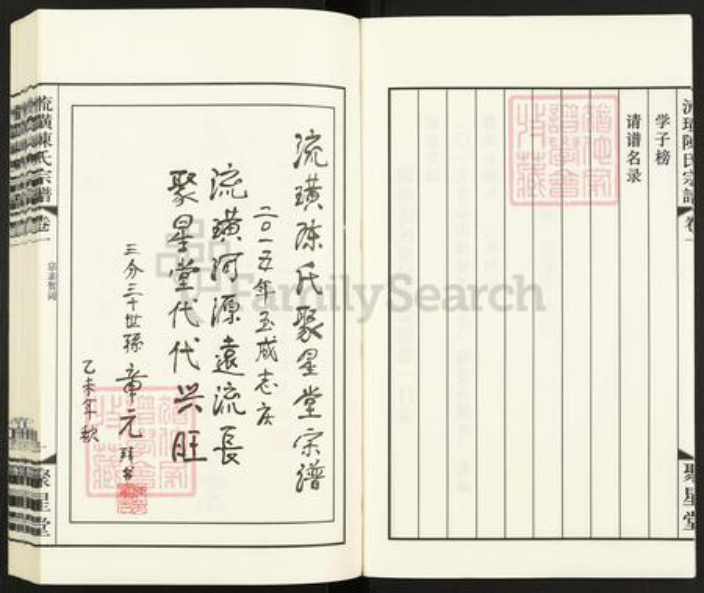 学子榜
请谱名录
流璜陈氏宗譜
卷一
聚星堂
流璜陈氏聚星堂宗谱
二〇一五年玉成志庆
流璜河源遠流長
聚星堂代代兴旺
三分三十世孫 章元 拜书
乙未年秋
流璜陳氏宗譜
卷一
聚星堂
FamilySearch